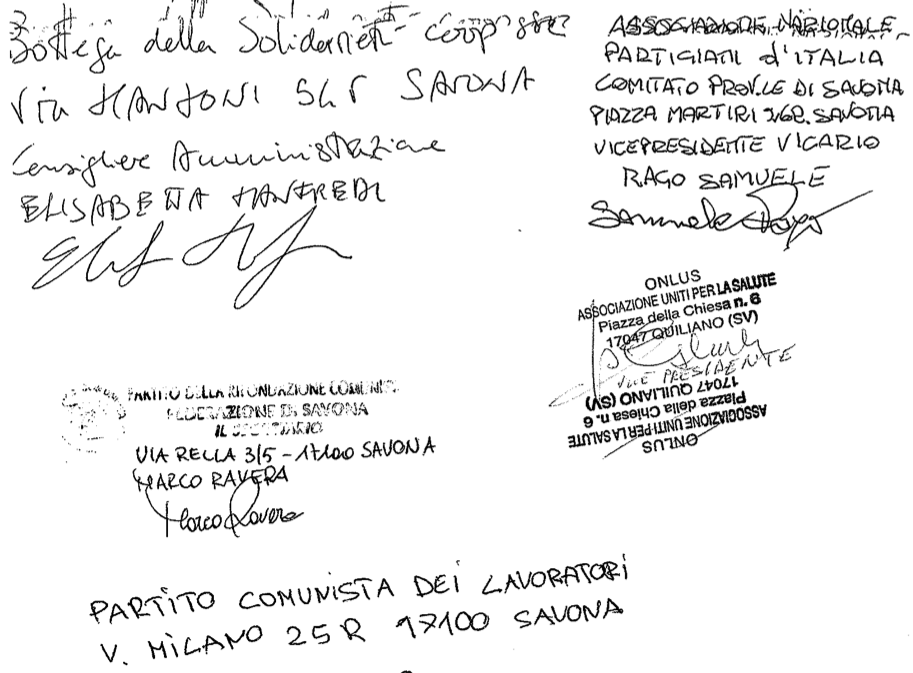 Bottega della Solidarietà Cooperativa
Via MANZONI SAVONA
Consigliere Amministrazione
ELISABETTA MANFREDI
ASSOCIAZIONE NAZIONALE
PARTIGIANI d'ITALIA
COMITATO PROV.LE DI SAVONA
PIAZZA MARTIRI SAVONA
VICEPRESIDENTE VICARIO
RAGO SAMUELE
Samuele Rago
ONLUS
ASSOCIAZIONE UNITI PER LA SALUTE
Piazza della Chiesa n. 6
17047 QUILIANO (SV)
VICE PRESIDENTE
17047 QUILIANO (SV)
Piazza della Chiesa n. 6
ASSOCIAZIONE UNITI PER LA SALUTE
ONLUS
PARTITO DELLA RIFONDAZIONE COMUNISTA
FEDERAZIONE DI SAVONA
IL SEGRETARIO
VIA RELLA 3/5 - 17100 SAVONA
MARCO RAVERA
Marco Ravera
PARTITO COMUNISTA DEI LAVORATORI
V. MILANO 25R 17100 SAVONA